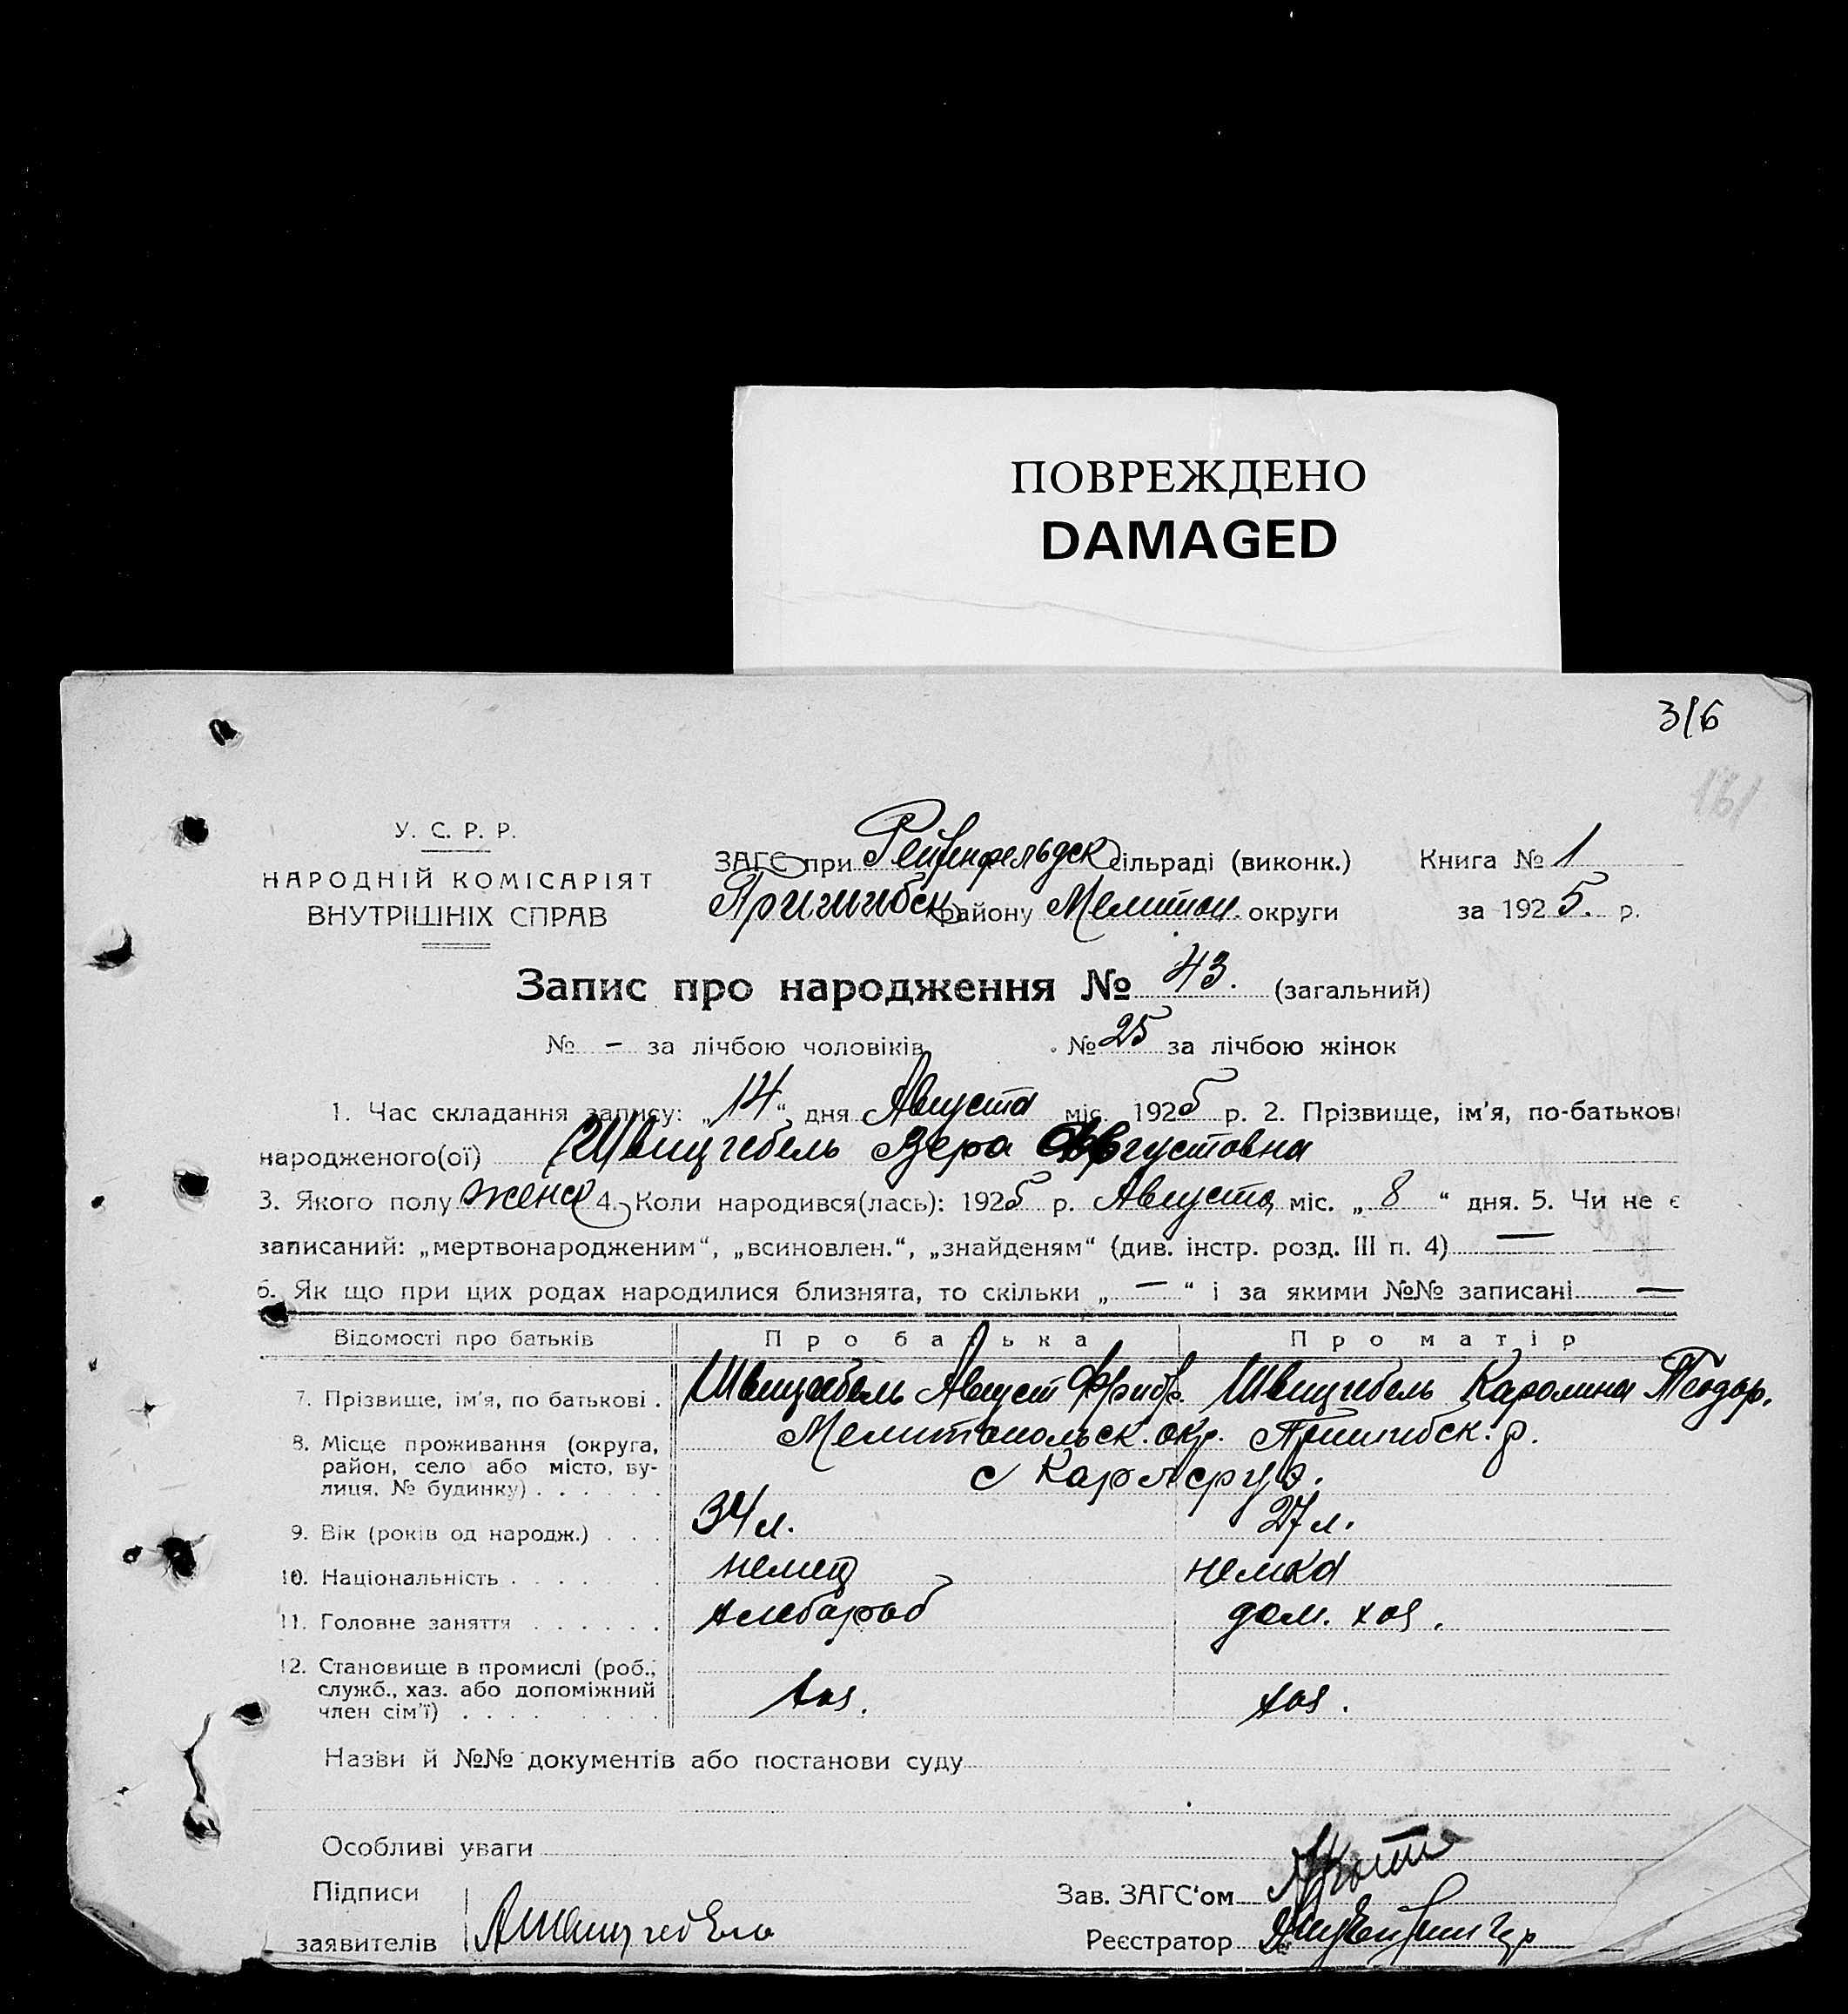 ПОВРЕЖДЕНО
DAMAGED
316
161
У. С. Р. Р.
НАРОДНІЙ КОМІСАРІЯТ
ВНУТРІШНІХ СПРАВ
ЗАГС при Рейхенфельдск сільраді (виконк.) Книга № 1
Пришибск району Мелитоп. округи за 1925. р.
Запис про народження № 43. (загальний)
№ – за лічбою чоловіків № 25 за лічбою жінок
1. Час складання запису: „14“ дня Августа міс. 1925 р. 2. Прізвище, ім'я, по-батькові
народженого(ої) Швицгебель Вера Августовна
3. Якого полу женс 4. Коли народився(лась): 1925 р. Августа міс. „8“ дня. 5. Чи не є
записаний: „мертвонародженим“, „всиновлен.“, „знайденям“ (див. інстр. розд. III п. 4) —
6. Як що при цих родах народилися близнята, то скільки „—“ і за якими №№ записані —
Відомості про батьків Про батька Про матір
7. Прізвище, ім'я, по батькові . Швицгебель Август Фридр. Швицгебель Каролина Теодор.
8. Місце проживання (округа, Мелитопольск. окр. Пришибск. р.
район, село або місто, ву-
лиця, № будинку) . . . . . . с Карлсруэ.
9. Вік (років од народж.) . . . 34 л. 27 л.
10. Національність . . . . . немец немка
11. Головне заняття . . . . . . хлебороб дом. хоз.
12. Становище в промислі (роб.,
служб., хаз. або допоміжний
член сім'ї) . . . . . . . . хоз. хоз.
Назви й №№ документів або постанови суду
Особливі уваги
Підписи
Зав. ЗАГС'ом
заявителів
Реєстратор